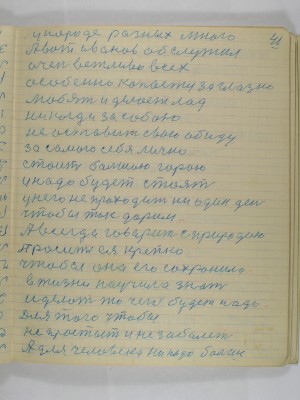 41
у народе разных много
А вот иванов обслужил
очен вежливо всех
особенно капосты за глазно
любят и делоет лад
никогда за собою
не оставит свою обиду
за самого себя лично
стоит балшою горою
и надо будет стоят
у него не проходит ни один ден
чтобы так даром
А всегда говорит с природаю
проситься крепко
чтобы она его сохранила
в жизни научила знат
и делот то чего будет надо
Для того чтобы
не простыт и не заболет
А для человека на надо болше